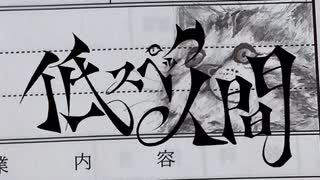 低スペ人間
業内容